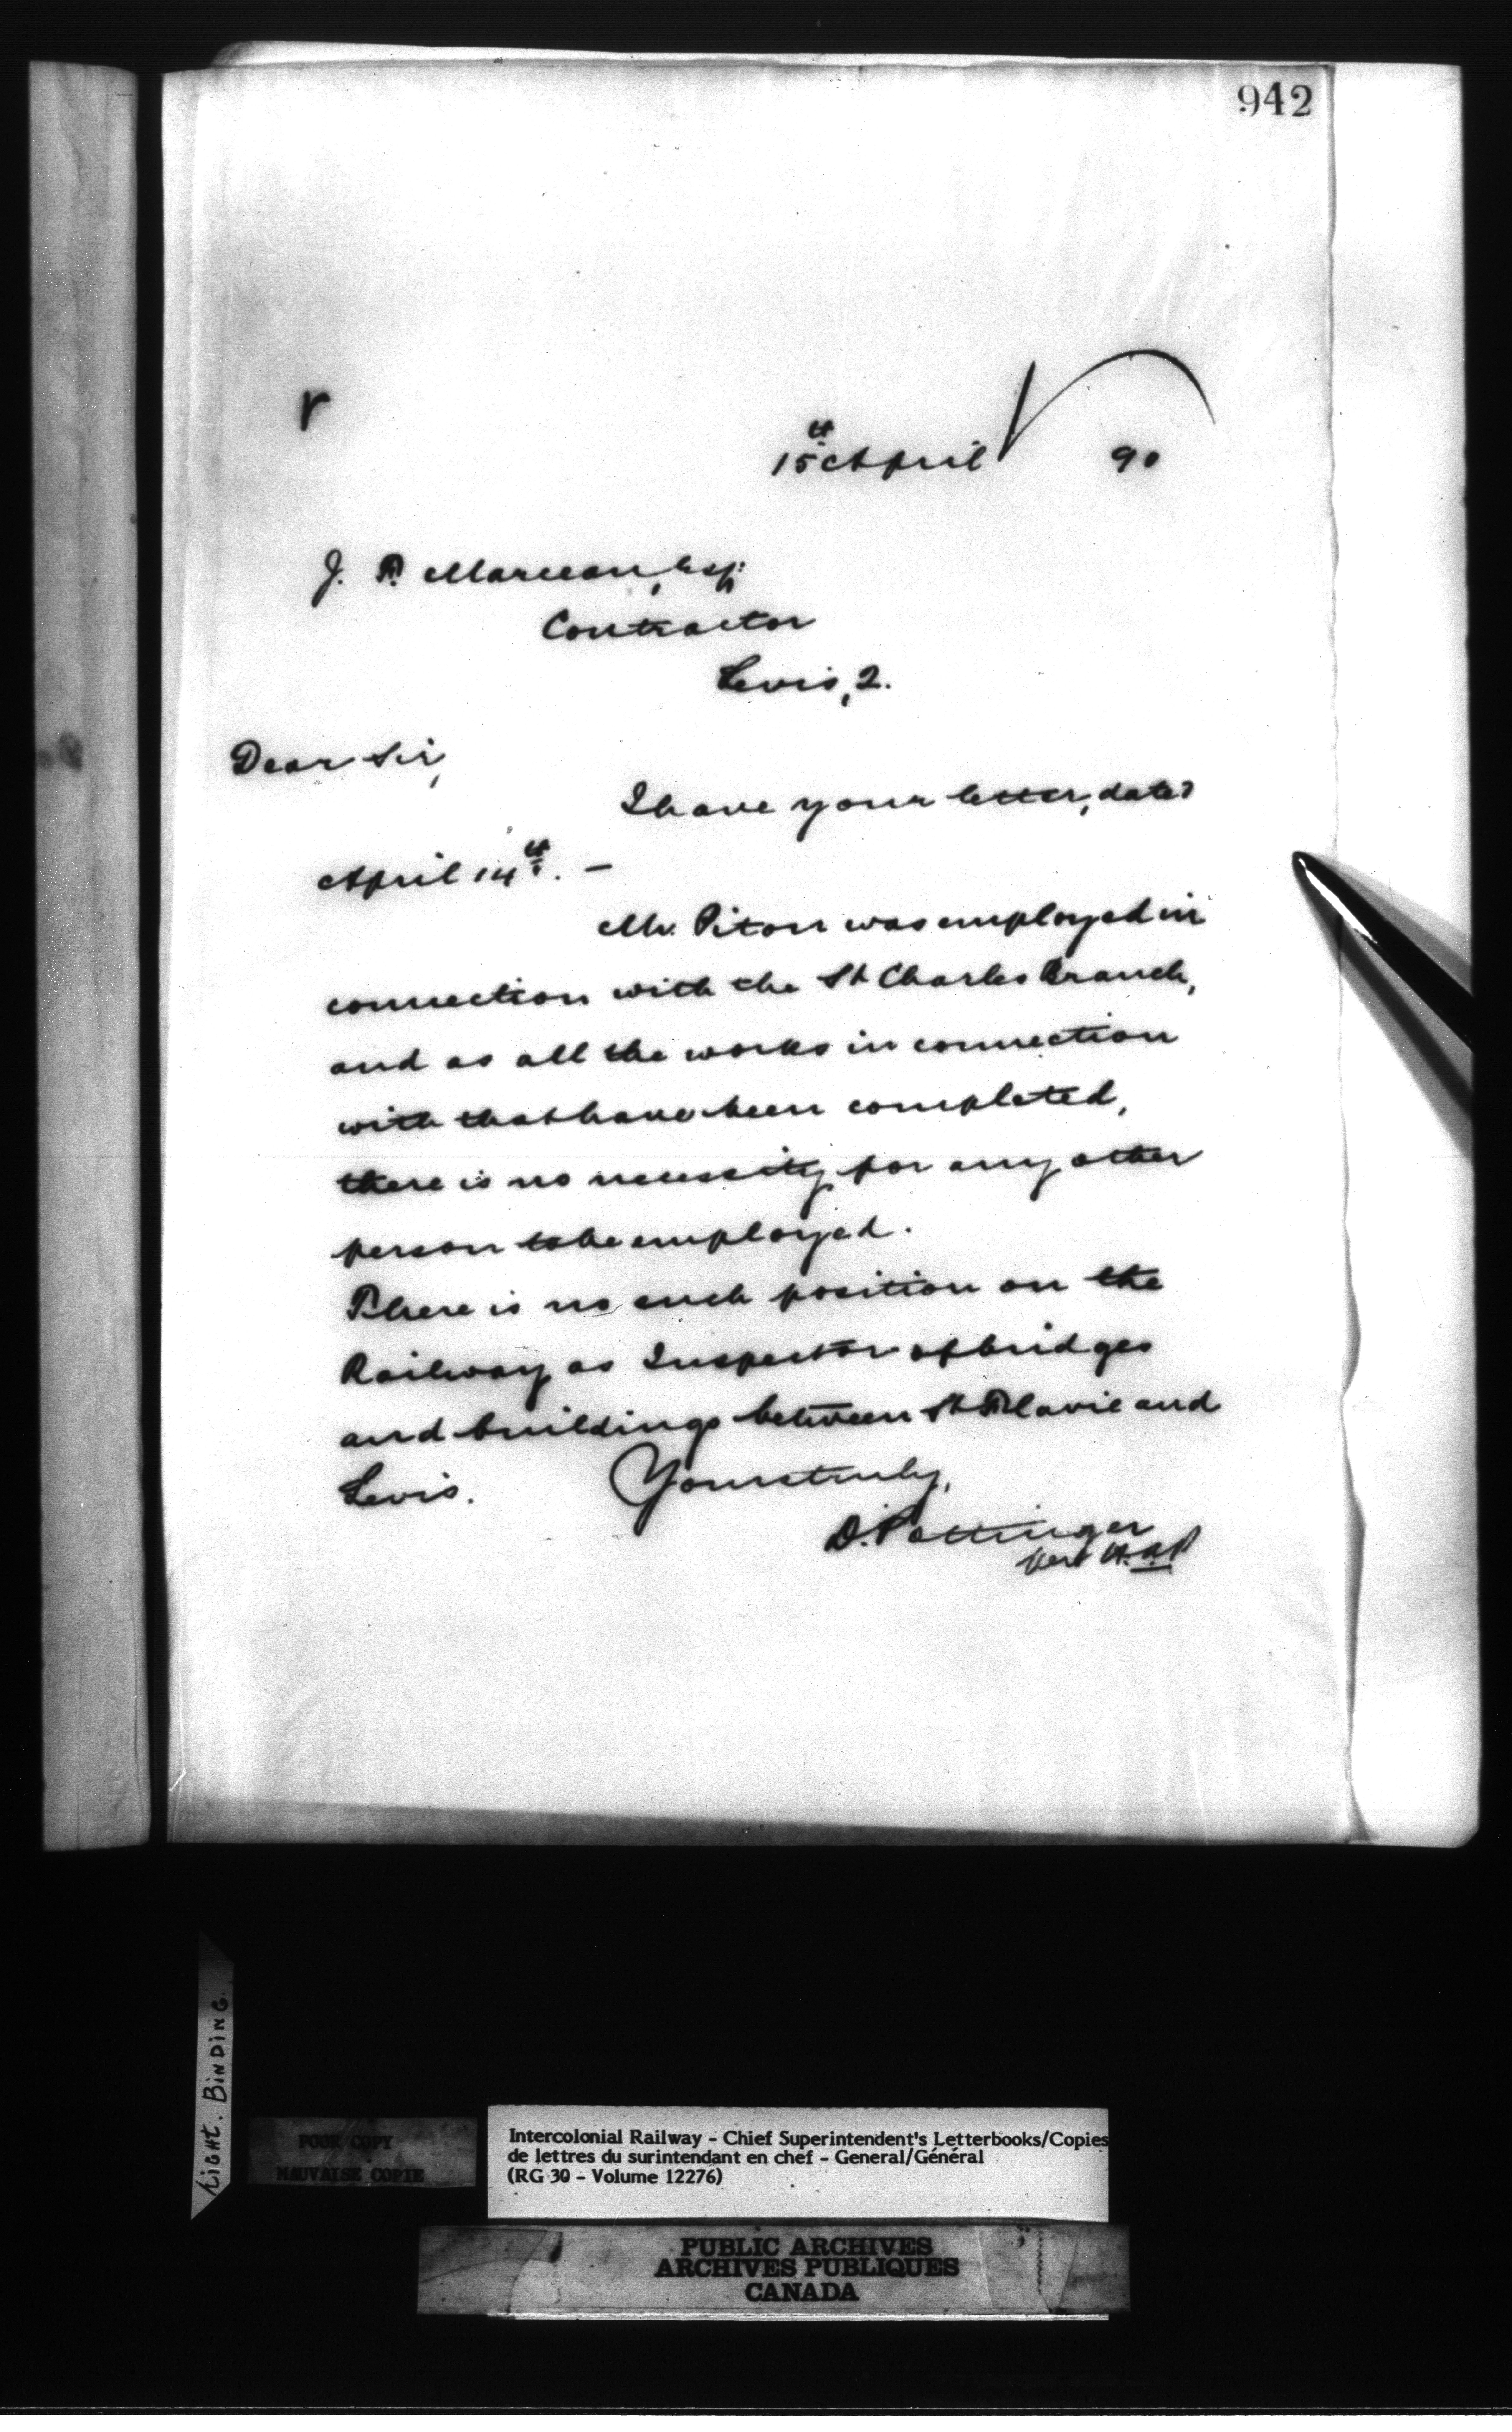 942
r
15th April 90
J. P. Marceau, Esq:
Contractor
Levis, 2.
Dear Sir,
I have your letter, dated
April 14th. —
Mr. Piton was employed in
connection with the St Charles Branch,
and as all the works in connection
with that have been completed,
there is no necessity for any other
person to be employed.
There is no such position on the
Railway as Inspector of bridges
and buildings between St Flavie and
Levis. Yours truly,
D. Pottinger
per
LIGHT. BINDING.
POOR COPY
MAUVAISE COPIE
Intercolonial Railway - Chief Superintendent's Letterbooks/Copies
de lettres du surintendant en chef - General/Général
(RG 30 - Volume 12276)
PUBLIC ARCHIVES
ARCHIVES PUBLIQUES
CANADA